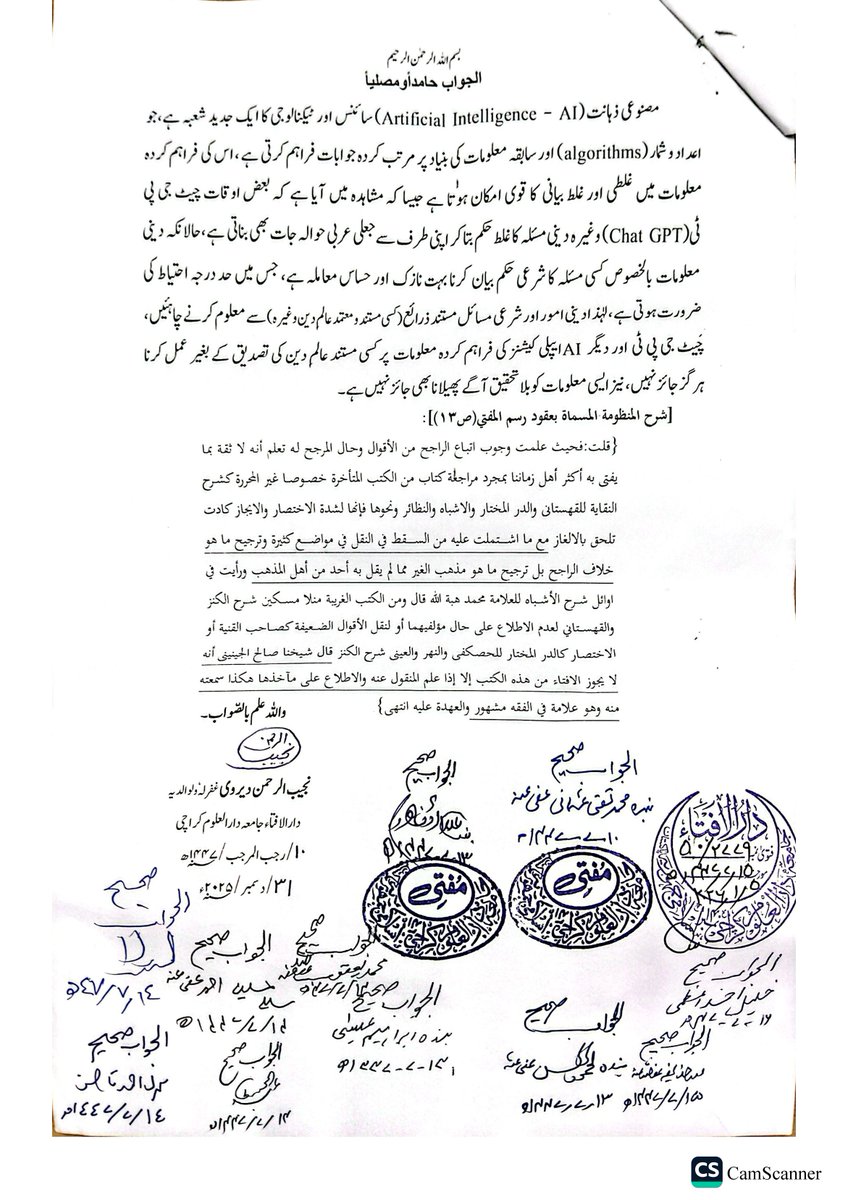 بسم اللہ الرحمٰن الرحیم
الجواب حامداً ومصلیاً
مصنوعی ذہانت (Artificial Intelligence - AI) سائنس اور ٹیکنالوجی کا ایک جدید شعبہ ہے، جو
اعداد و شمار (algorithms) اور سابقہ معلومات کی بنیاد پر مرتب کردہ جوابات فراہم کرتی ہے، اس کی فراہم کردہ
معلومات میں غلطی اور غلط بیانی کا قوی امکان ہوتا ہے جیسا کہ مشاہدہ میں آیا ہے کہ بعض اوقات چیٹ جی پی
ٹی (Chat GPT) وغیرہ دینی مسئلہ کا غلط حکم بتا کر اپنی طرف سے جعلی عربی حوالہ جات بھی بناتی ہے، حالانکہ دینی
معلومات بالخصوص کسی مسئلہ کا شرعی حکم بیان کرنا بہت نازک اور حساس معاملہ ہے، جس میں حد درجہ احتیاط کی
ضرورت ہوتی ہے، لہٰذا دینی امور اور شرعی مسائل مستند ذرائع (کسی مستند و معتمد عالم دین وغیرہ) سے معلوم کرنے چاہئیں،
چَیٹ جی پی ٹی اور دیگر AI ایپلی کیشنز کی فراہم کردہ معلومات پر کسی مستند عالمِ دین کی تصدیق کے بغیر عمل کرنا
ہرگز جائز نہیں، نیز ایسی معلومات کو بلا تحقیق آگے پھیلانا بھی جائز نہیں ہے۔
[شرح المنظومة المسماة بعقود رسم المفتي (ص١٣)]:
{قلت: فحيث علمت وجوب اتباع الراجح من الأقوال وحال المرجح له تعلم أنه لا ثقة بما
يفتى به أكثر أهل زماننا بمجرد مراجعة كتاب من الكتب المتأخرة خصوصا غير المحررة كشرح
النقاية للقهستاني والدر المختار والاشباه والنظائر ونحوها فإنها لشدة الاختصار والايجاز كادت
تلحق بالالغاز مع ما اشتملت عليه من السقط في النقل في مواضع كثيرة وترجيح ما هو
خلاف الراجح بل ترجيح ما هو مذهب الغير مما لم يقل به أحد من أهل المذهب ورأيت في
اوائل شرح الأشباه للعلامة محمد هبة الله قال ومن الكتب الغريبة منلا مسكين شرح الكنز
والقهستاني لعدم الاطلاع على حال مؤلفيهما أو لنقل الأقوال الضعيفة كصاحب القنية أو
الاختصار كالدر المختار للحصكفى والنهر والعينى شرح الكنز قال شيخنا صالح الجينينى أنه
لا يجوز الافتاء من هذه الكتب إلا إذا علم المنقول عنه والاطلاع على مآخذها هكذا سمعته
منه وهو علامة في الفقه مشهور والعهدة عليه انتهى}
واللہ اعلم بالصّواب۔
نجیب الرحمن
نجیب الرحمن دیروی غفرلہٗ ولوالدیہ
دارالافتاء جامعہ دارالعلوم کراچی
۱۰/رجب المرجب/۱۴۴۷ھ
۳۱/دسمبر/۲۰۲۵ء
الجواب صحیح
بندہ محمد تقی عثمانی عفی عنہ
۱۰-۷-۱۴۴۷ھ
مفتی
الجواب صحیح
مفتی
دارالافتاء
الجواب صحیح
۱۴/۷/۴۷ھ
الجواب صحیح
الجواب صحیح
الجواب صحیح
بندہ ابراہیم عیسیٰ
الجواب صحیح
الجواب صحیح
الجواب صحیح
الجواب صحیح
الجواب صحیح
۱۴/۷/۱۴۴۷ھ
CS CamScanner